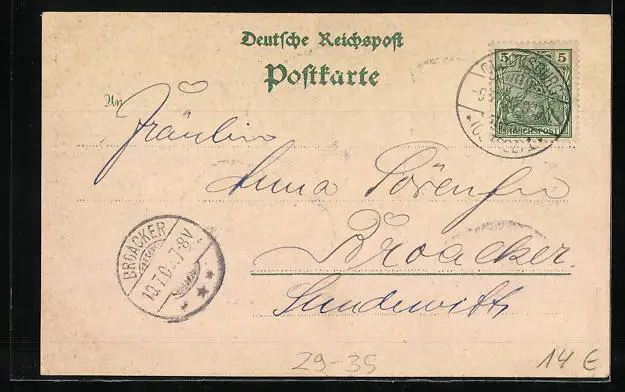 Deutsche Reichspost
Postkarte
5 5
REICHSPOST
An
Fräulein
Anna Sörensen
Broacker
Sundewitt
BROACKER
10.7.0 7-8V
29-35
14 €